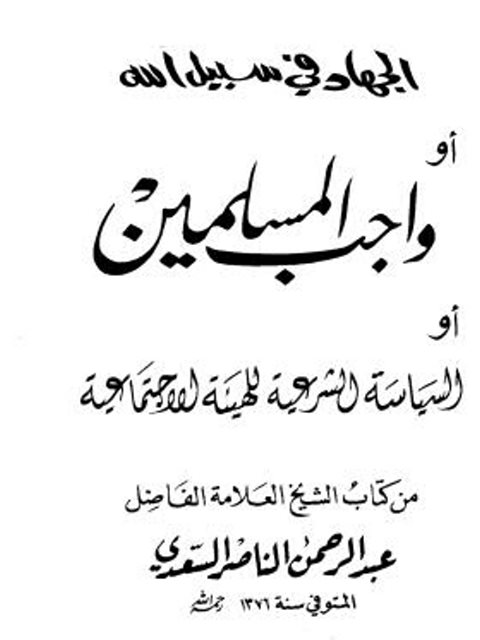 الجهاد في سبيل الله
أو
واجب المسلمين
أو
السياسة الشرعية للهيئة الاجتماعية
من كتاب الشيخ العلامة الفاضل
عبد الرحمن الناصر السعدي
المتوفي سنة ١٣٧٦ رحمه الله